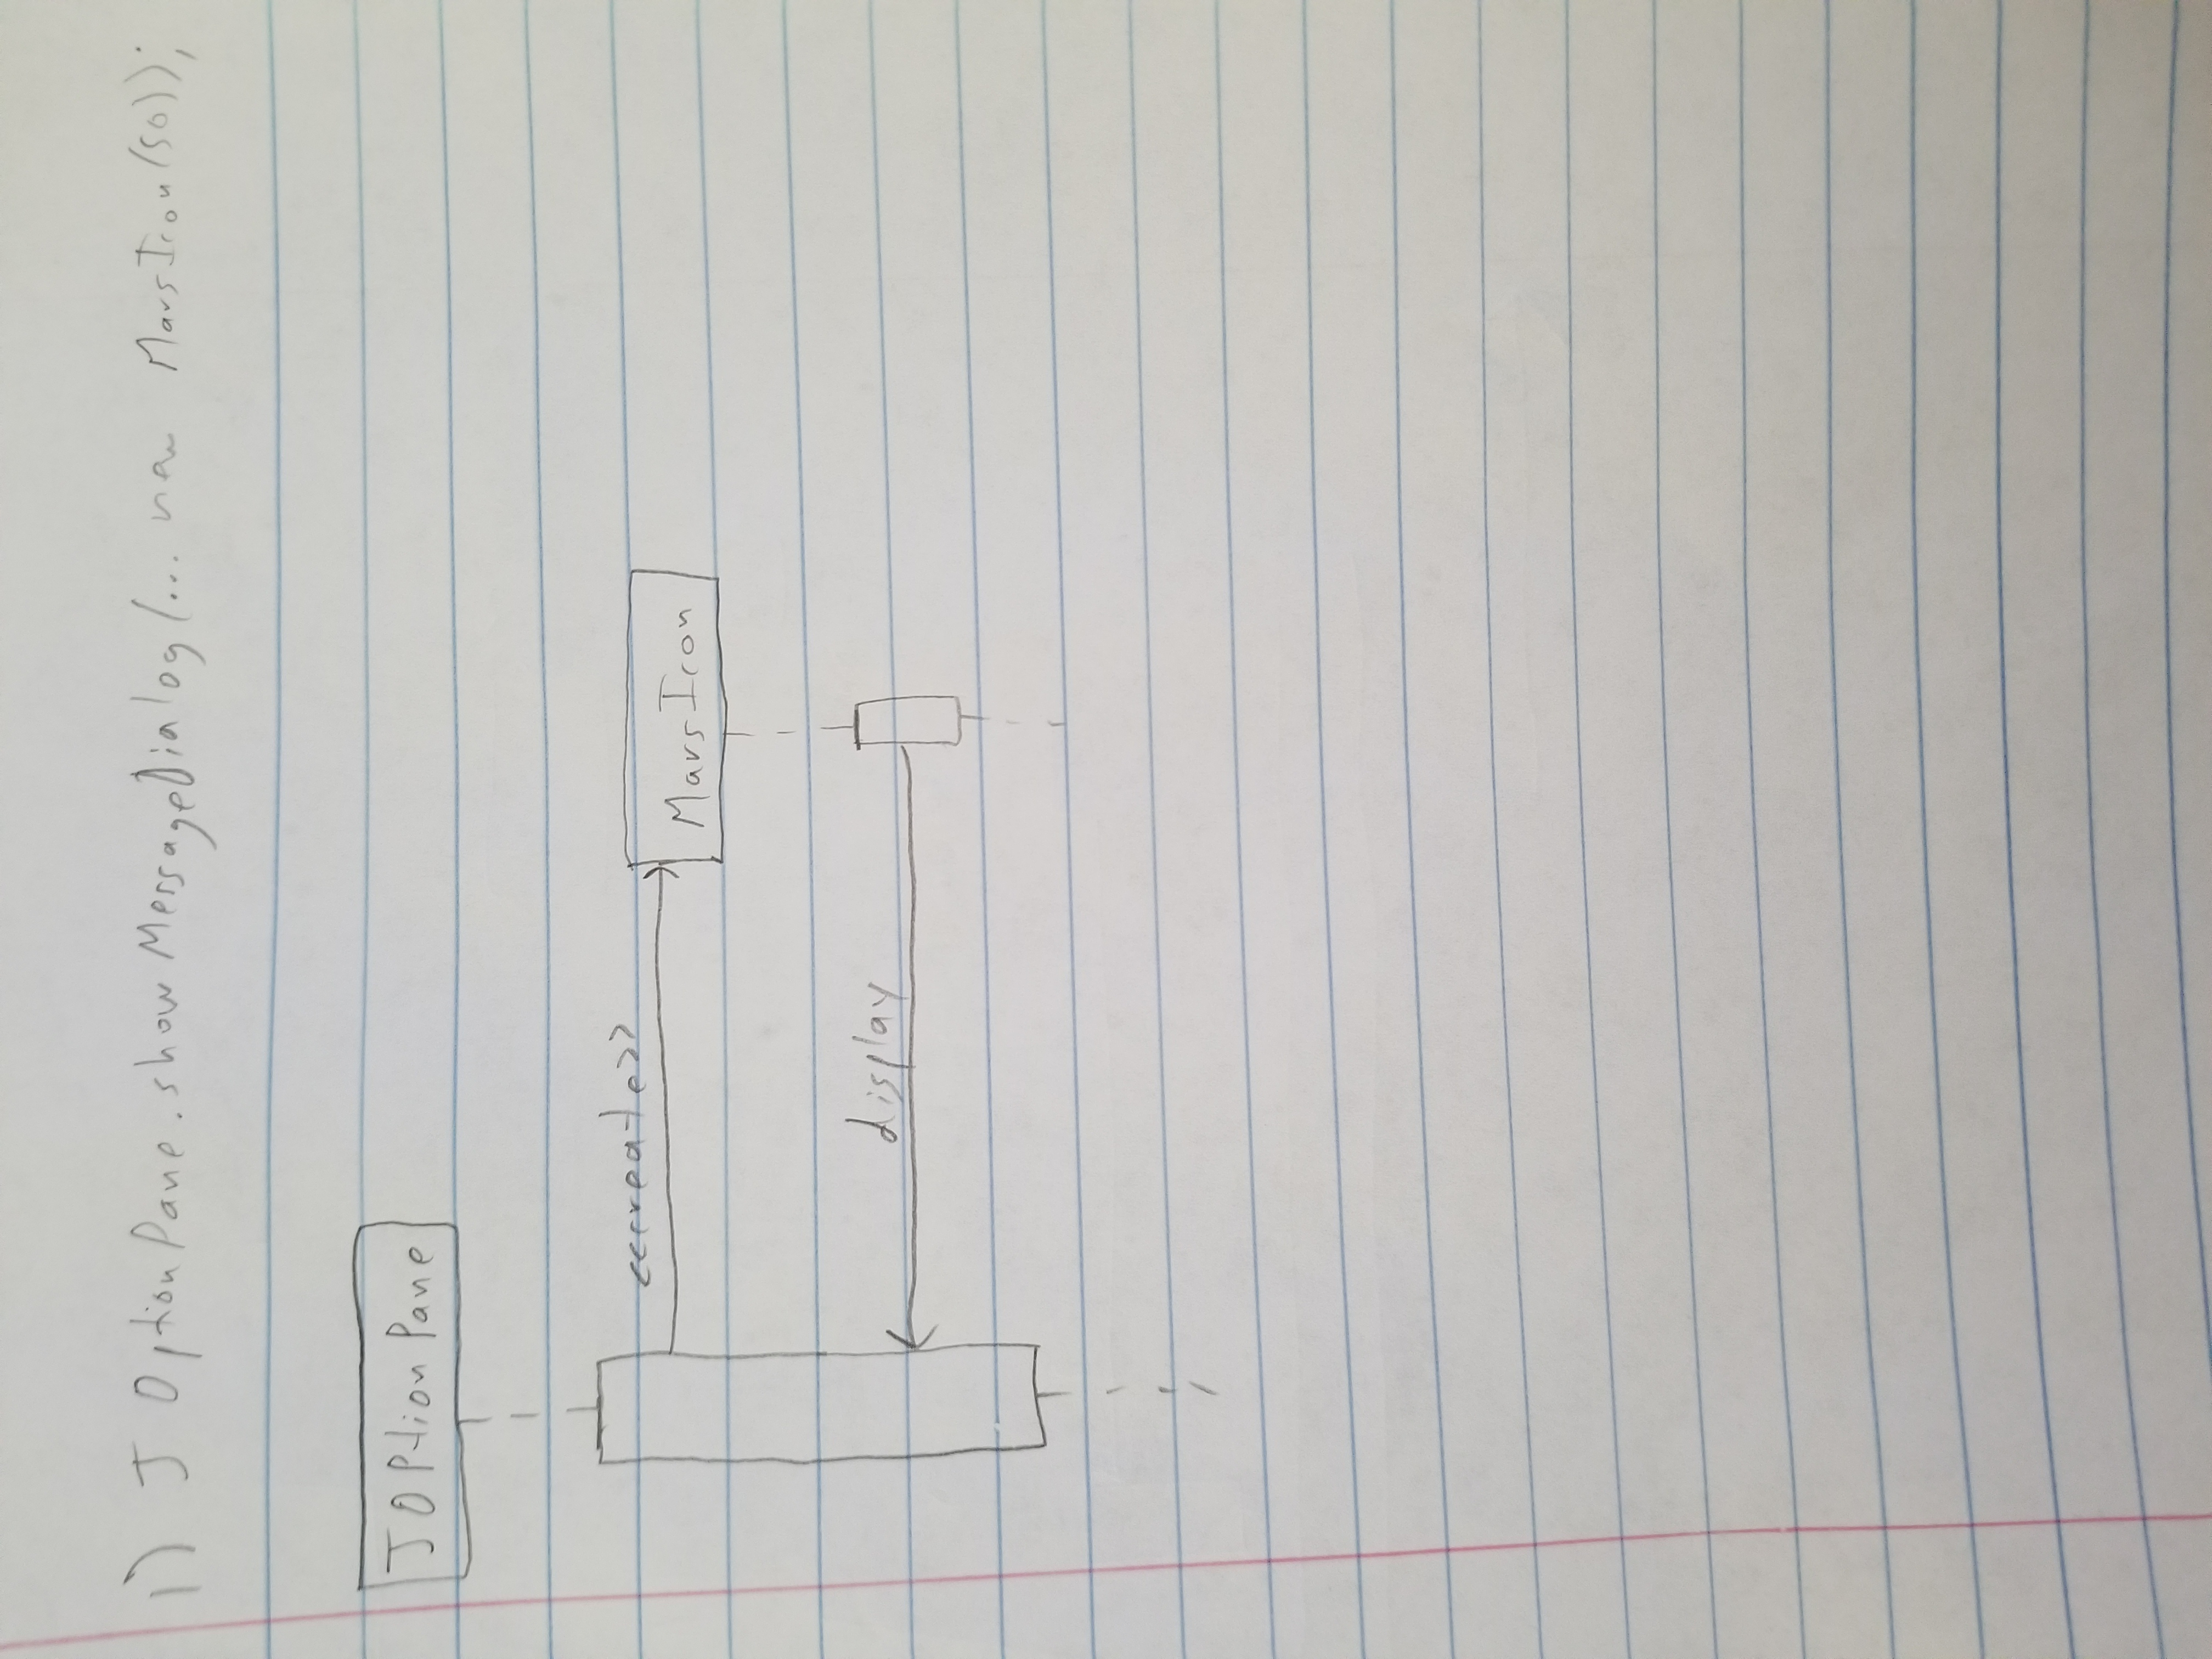 1) JOptionPane.showMessageDialog(... new MarsIcon(50));
JOptionPane
<<create>>
MarsIcon
display